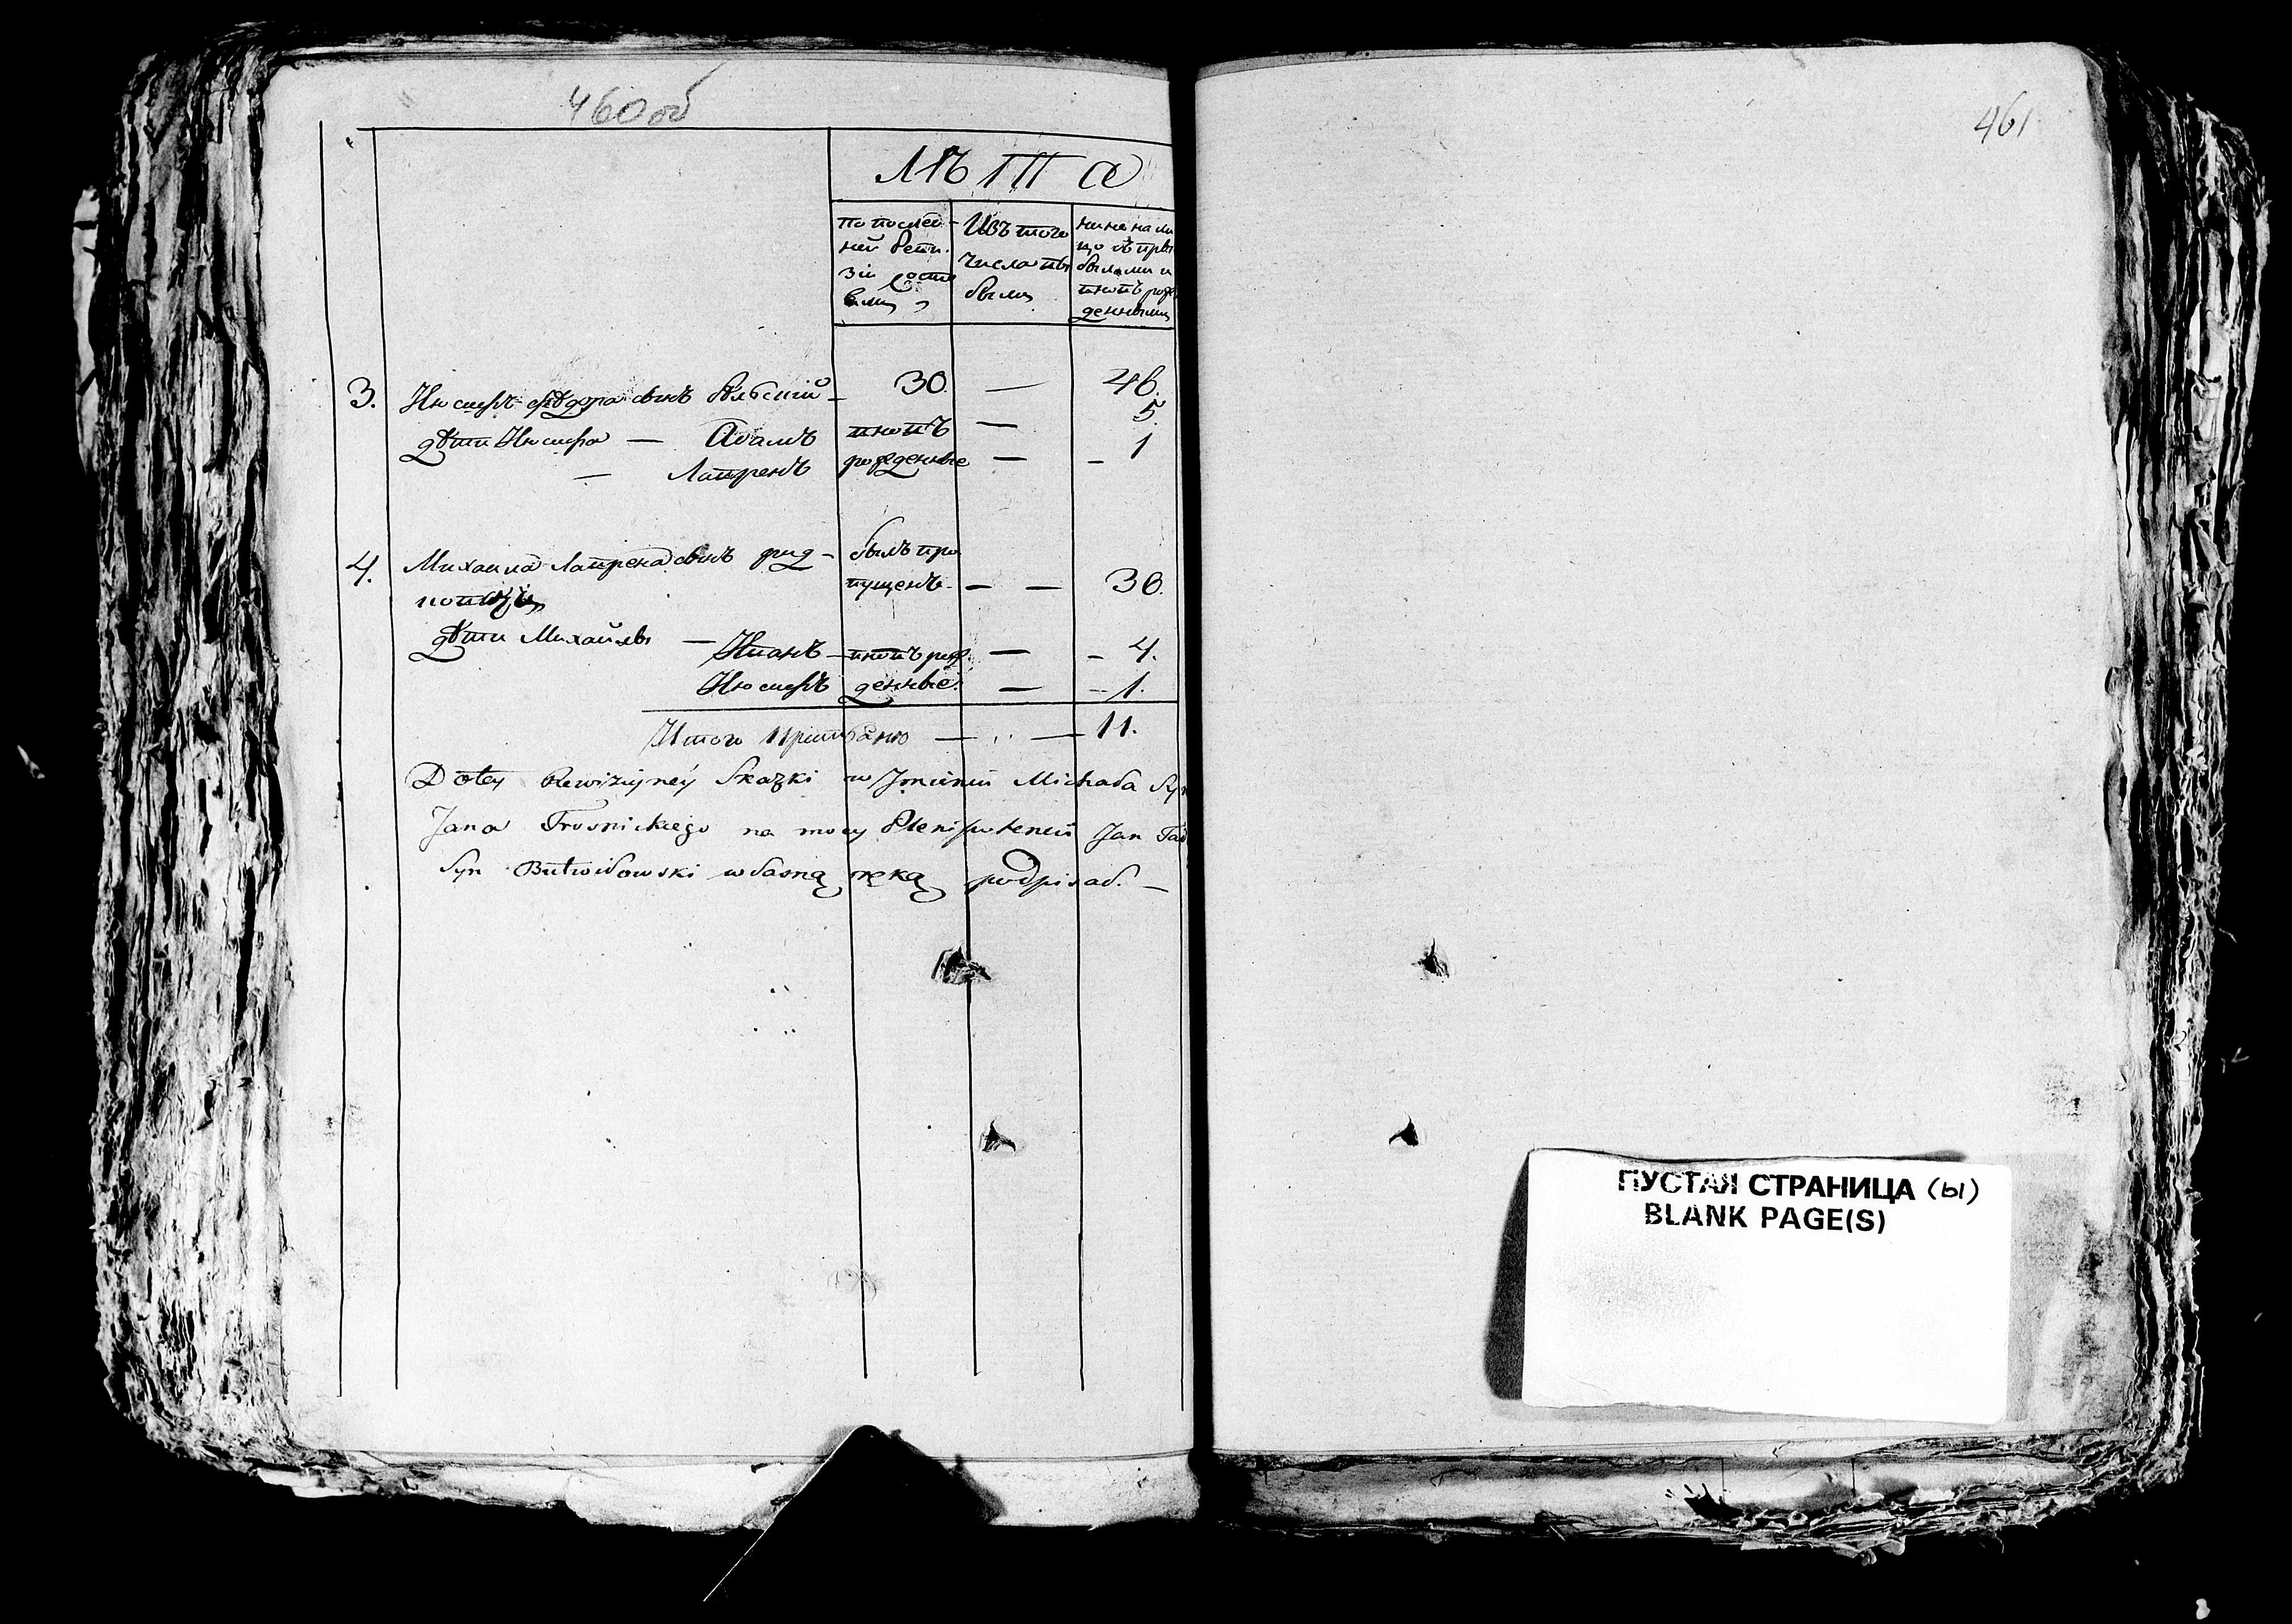 460 об
Лѣта
по послед-
ней реви-
зіи состо
яли
Изъ того
числа вы
были
ныне на ли
цо съ при
былыми и
вновь рож
денными
3. Іюсифъ Ѳедора сынъ Бѣльскій — 30. — 46.
дѣти Іюсифа — Адамъ вновь — 5.
— Лавренъ рожденные — — 1
4. Михаила Лаврена сынъ был про
пущенъ. — — 30.
дѣти Михайлы — Иванъ — вновь рож — — 4.
Іюсифъ денные. — — 1.
Итого — — 11.
Dotey Rewizyiney Skazki w Jmieniu Michała Syn
Jana Trosnickiego na mocy Plenipotencii Jan
Syn Butwiłowski własną ręką podpisał. —
461
ПУСТАЯ СТРАНИЦА (ы)
BLANK PAGE(S)